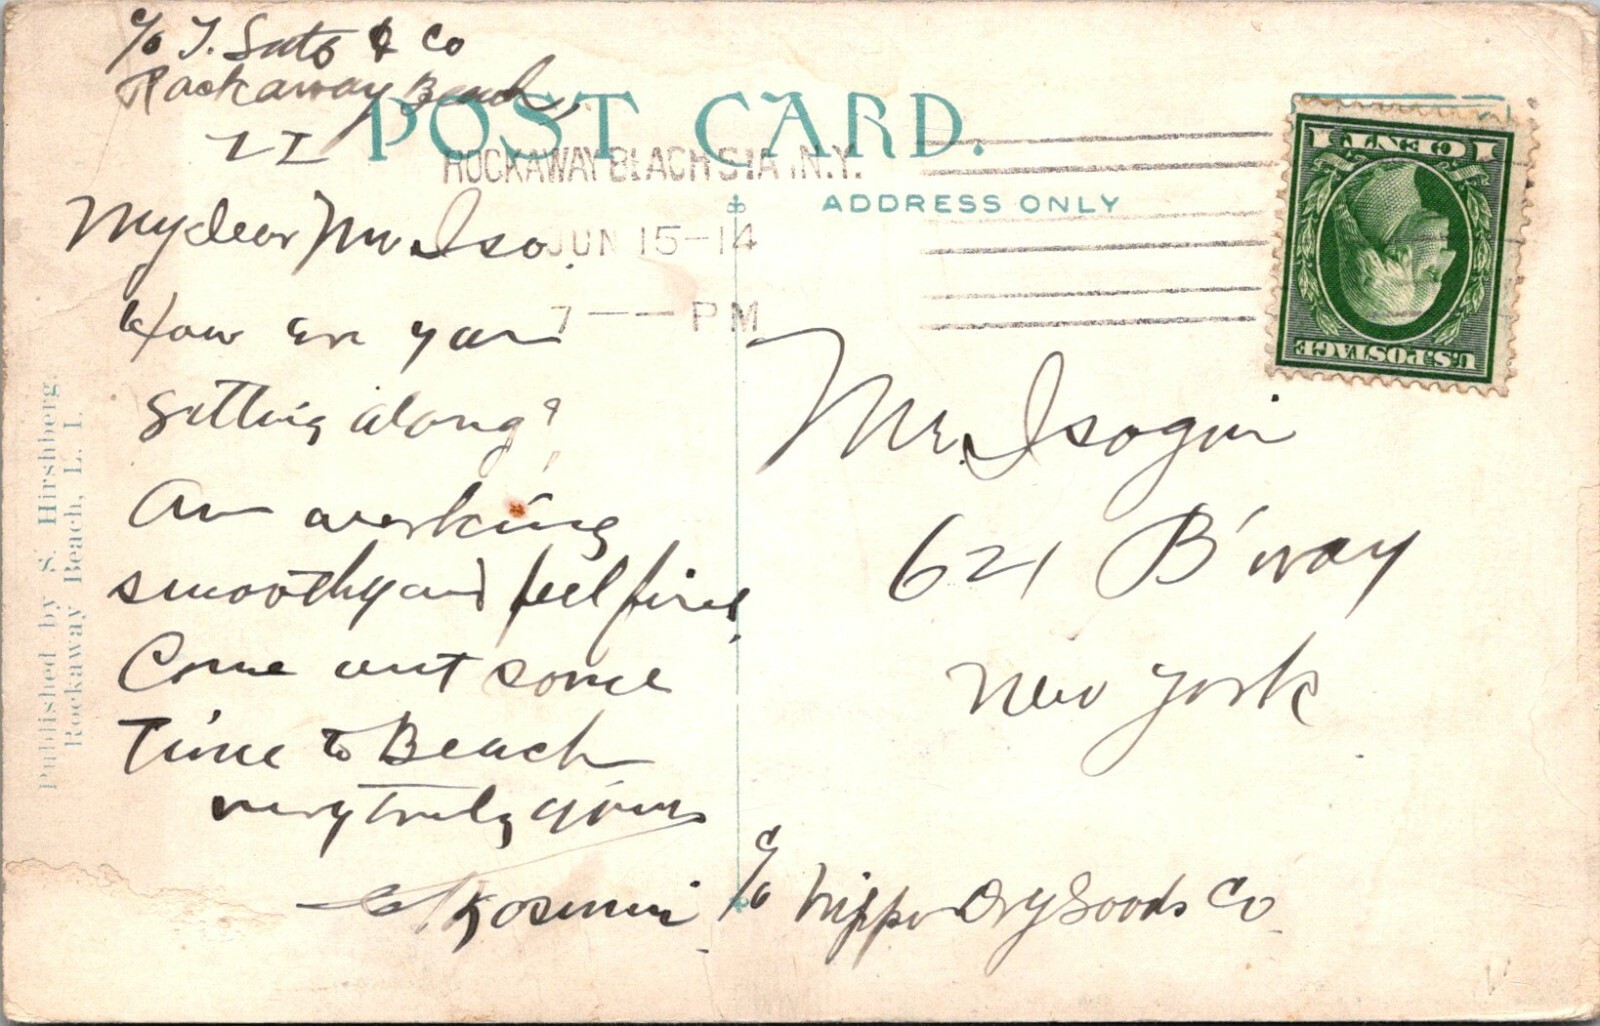 c/o T. Sato & Co
Rockaway Beach,
L I
POST CARD.
ROCKAWAY BEACH STA. N.Y.
JUN 15-14
7 — — PM
ADDRESS ONLY
U.S. POSTAGE
1 CENT 1
My dear Mr Iso.
How are you
getting along?
Am working
smoothly and feel fine,
Come out some
time to Beach
very truly yours
Published by S. Hirshberg,
Rockaway Beach, L. I.
Mr. Isogin
621 B'way
New York
c/o Nippon Dry Goods Co